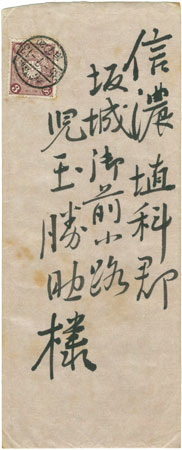 信濃埴科郡
坂城御前小路
児玉勝助様